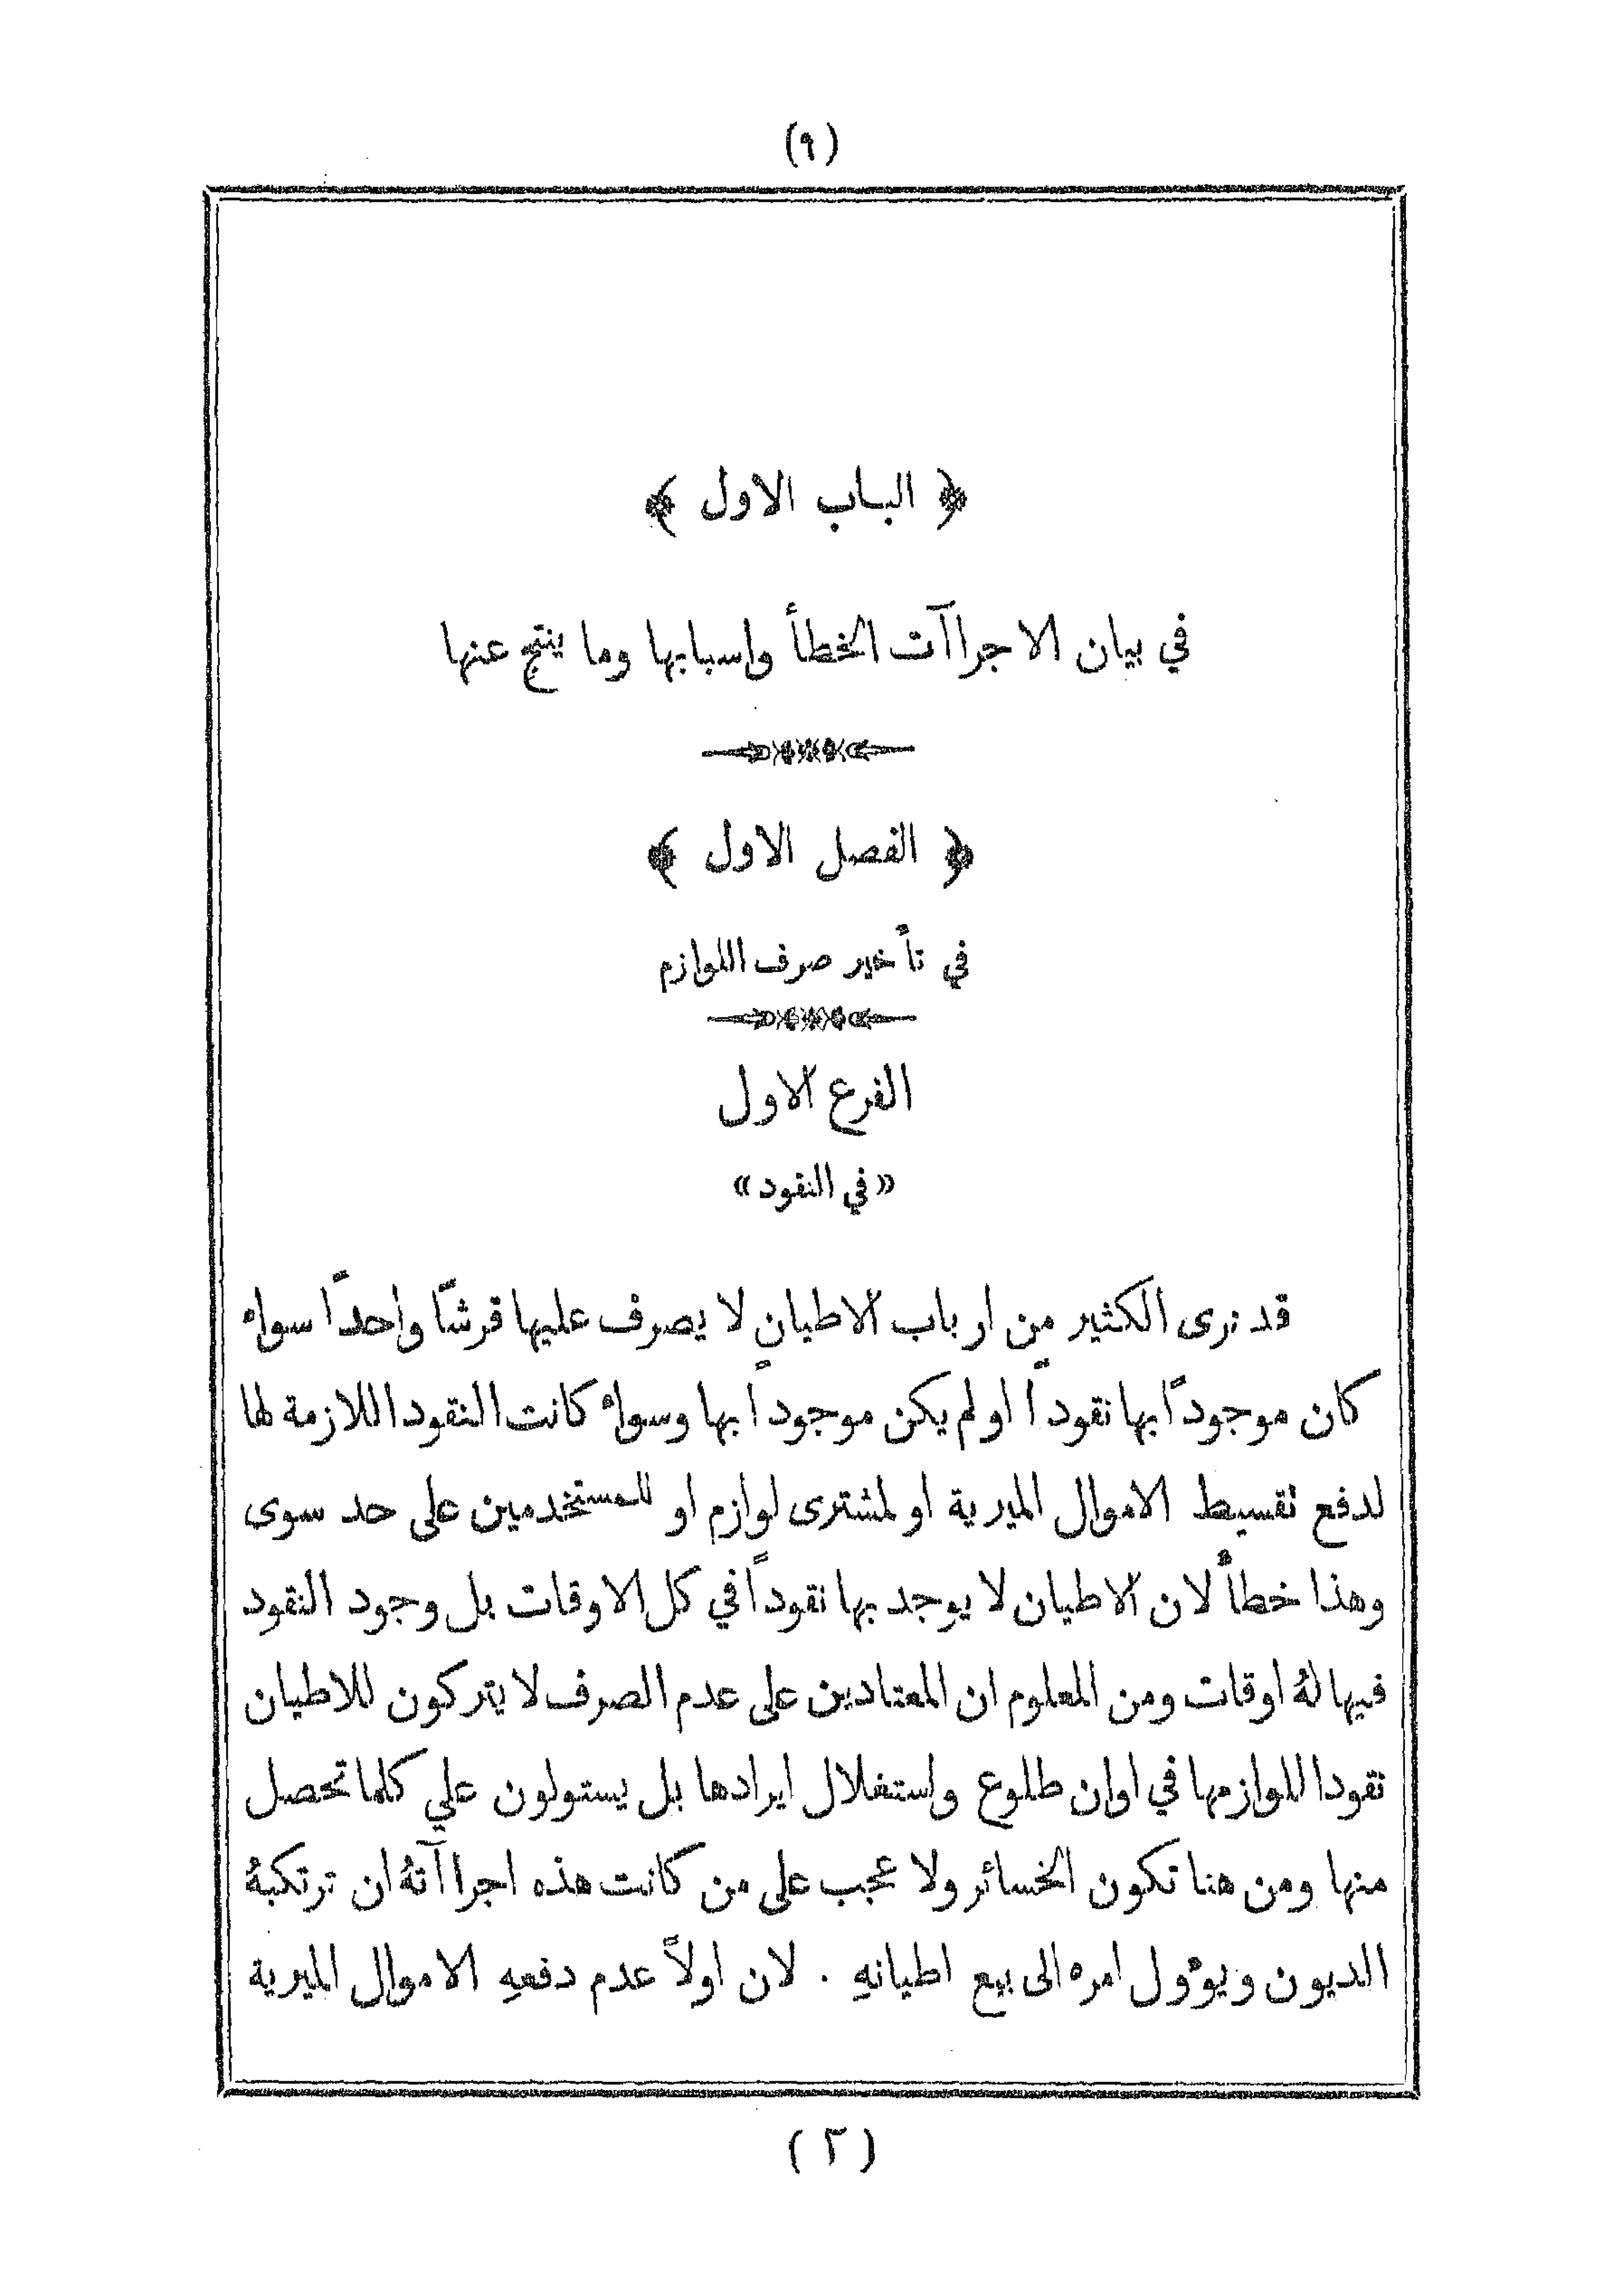 (٩)
﴿ الباب الاول ﴾
في بيان الاجراآت الخطأ واسبابها وما ينتج عنها
﴿ الفصل الاول ﴾
في تأخير صرف اللوازم
الفرع الاول
«في النقود»
قد نرى الكثير من ارباب الاطيان لا يصرف عليها قرشًا واحدًا سواء
كان موجودًا بها نقودًا او لم يكن موجودًا بها وسواء كانت النقود اللازمة لها
لدفع تقسيط الاموال الميرية او لمشترى لوازم او للمستخدمين على حد سوى
وهذا خطأ لان الاطيان لا يوجد بها نقودًا في كل الاوقات بل وجود النقود
فيها لهُ اوقات ومن المعلوم ان المعتادين على عدم الصرف لا يتركون للاطيان
نقودا للوازمها في اوان طلوع واستغلال ايرادها بل يستولون علي كلما تحصل
منها ومن هنا تكون الخسائر ولا عجب على من كانت هذه اجراآتهُ ان ترتكبهُ
الديون ويوٴول امره الى بيع اطيانهِ . لان اولاً عدم دفعهِ الاموال الميرية
(٢)